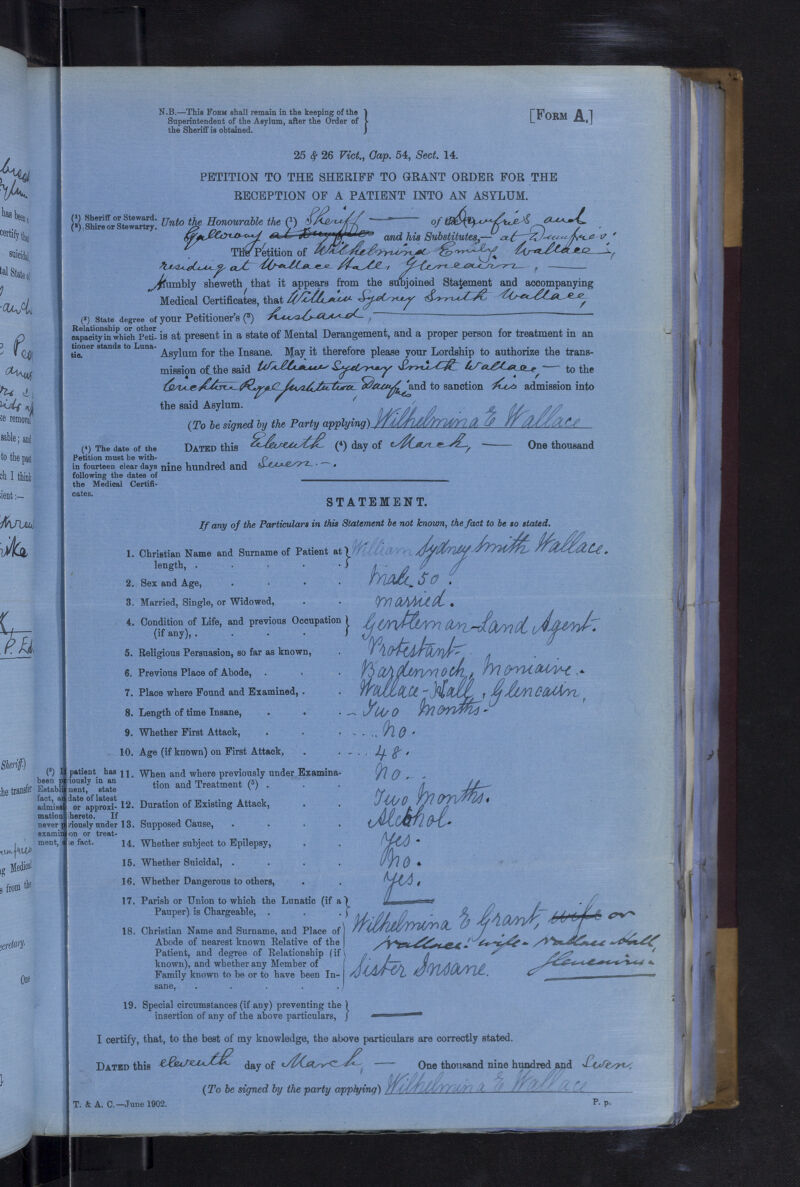 N.B.—This Form shall remain in the keeping of the
Superintendent of the Asylum, after the Order of
the Sheriff is obtained.
[Form A.]
25 & 26 Vict., Cap. 54, Sect. 14.
PETITION TO THE SHERIFF TO GRANT ORDER FOR THE
RECEPTION OF A PATIENT INTO AN ASYLUM.
(¹) Sheriff or Steward.
(²) Shire or Stewartry.
Unto the Honourable the (¹) Sheriff — of Dumfries and
Galloway at Dumfries and his Substitutes,— at Dumfries.
The Petition of Wilhelmina Emily Wallace,
residing at Wallace Hall, Glencairn, —
Humbly sheweth, that it appears from the subjoined Statement and accompanying
Medical Certificates, that William Sydney Smith Wallace,
(³) State degree of
Relationship or other
capacity in which Peti-
tioner stands to Luna-
tic.
your Petitioner's (³) husband,
is at present in a state of Mental Derangement, and a proper person for treatment in an
Asylum for the Insane. May it therefore please your Lordship to authorize the trans-
mission of the said William Sydney Smith Wallace, — to the
Crichton Royal Institution Dumfries and to sanction his admission into
the said Asylum.
(To be signed by the Party applying) Wilhelmina E Wallace
(⁴) The date of the
Petition must be with-
in fourteen clear days
following the dates of
the Medical Certifi-
cates.
Dated this Eleventh (⁴) day of March, — One thousand
nine hundred and Seven. —.
STATEMENT.
If any of the Particulars in this Statement be not known, the fact to be so stated.
1. Christian Name and Surname of Patient at
length, . William Sydney Smith Wallace.
2. Sex and Age, Male. 50.
3. Married, Single, or Widowed, married.
4. Condition of Life, and previous Occupation
(if any), . Gentleman-Land Agent.
5. Religious Persuasion, so far as known, Protestant.
6. Previous Place of Abode, . Bardennoch, Moniaive.
7. Place where Found and Examined, . Wallace-Hall, Glencairn,
8. Length of time Insane, Two Months.
9. Whether First Attack, No.
10. Age (if known) on First Attack, 48.
(⁵) If patient has
been previously in an
Establishment, state
fact, and date of latest
admission or approxi-
mation thereto. If
never previously under
examination or treat-
ment, state fact.
11. When and where previously under Examina-
tion and Treatment (⁵) . No.
12. Duration of Existing Attack, Two Months.
13. Supposed Cause, Alcohol.
14. Whether subject to Epilepsy, Yes.
15. Whether Suicidal, . No.
16. Whether Dangerous to others, Yes.
17. Parish or Union to which the Lunatic (if a
Pauper) is Chargeable, . —
18. Christian Name and Surname, and Place of
Abode of nearest known Relative of the
Patient, and degree of Relationship (if
known), and whether any Member of
Family known to be or to have been In-
sane,
Wilhelmina E Grant, wife or
Wallace: wife - Wallace Hall,
Glencairn.
Sister Insane.
19. Special circumstances (if any) preventing the
insertion of any of the above particulars, —
I certify, that, to the best of my knowledge, the above particulars are correctly stated.
Dated this eleventh day of March, — One thousand nine hundred and Seven.
(To be signed by the party applying) Wilhelmina E Wallace
T. & A. C.—June 1902.
P. p.